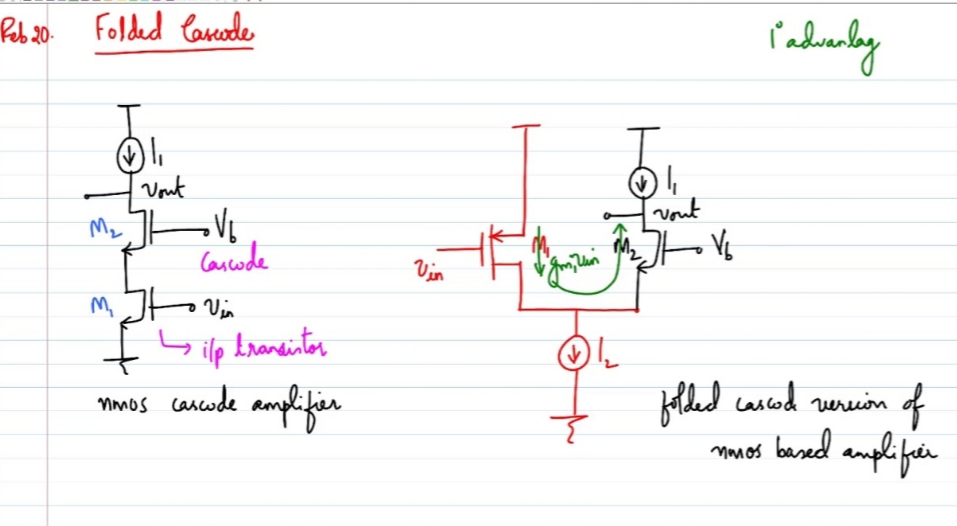 Feb 20.
Folded Cascode
1° advantag
I₁
Vout
M₂
Vb
Cascode
M₁
Vin
i/p transistor
nmos cascode amplifier
I₁
Vout
M₁
M₂
Vb
gm₁vin
Vin
I₂
folded cascod version of
nmos based amplifier